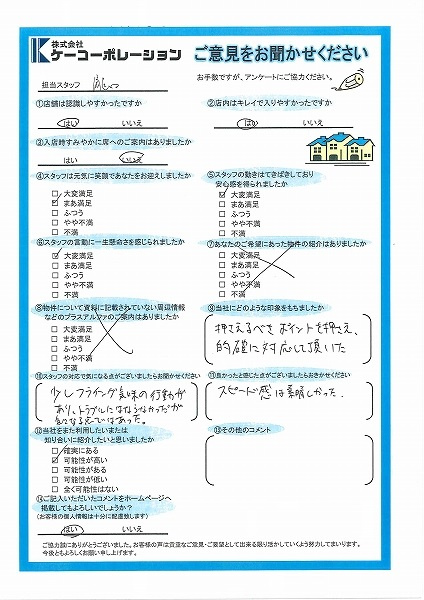 株式会社
ケーコーポレーション
ご意見をお聞かせください
お手数ですが、アンケートにご協力ください。
担当スタッフ
①店舗は認識しやすかったですか
はい いいえ
②店内はキレイで入りやすかったですか
はい いいえ
③入店時すみやかに席へのご案内はありましたか
はい いいえ
④スタッフは元気に笑顔であなたをお迎えしましたか
大変満足
まあ満足
ふつう
やや不満
不満
⑤スタッフの動きはてきぱきしており
安心感を得られましたか
大変満足
まあ満足
ふつう
やや不満
不満
⑥スタッフの言動に一生懸命さを感じられましたか
大変満足
まあ満足
ふつう
やや不満
不満
⑦あなたのご希望にあった物件の紹介はありましたか
大変満足
まあ満足
ふつう
やや不満
不満
⑧物件について資料に記載されていない周辺情報
などのプラスアルファのご案内はありましたか
大変満足
まあ満足
ふつう
やや不満
不満
⑨当社にどのような印象をもちましたか
押さえるべきポイントを押さえ、
的確に対応して頂いた
⑩スタッフの対応で気になる点がございましたらお聞かせください
少しフライング気味の行動が
あり、トラブルにはならなかったが
気になる点ではあった。
⑪良かったと感じた点がございましたらおきかせください
スピード感は素晴しかった.
⑫当社をまた利用したいまたは
知り合いに紹介したいと思いましたか
確実にある
可能性が高い
可能性がある
可能性が低い
全く可能性はない
⑬その他のコメント
⑭ご記入いただいたコメントをホームページへ
掲載してもよろしいでしょうか?
(お客様の個人情報は十分に配慮致します)
はい いいえ
ご協力誠にありがとうございました。お客様の声は貴重なご意見・ご要望として出来る限り活かしていくよう努力してまいります。
今後ともよろしくお願い申し上げます。